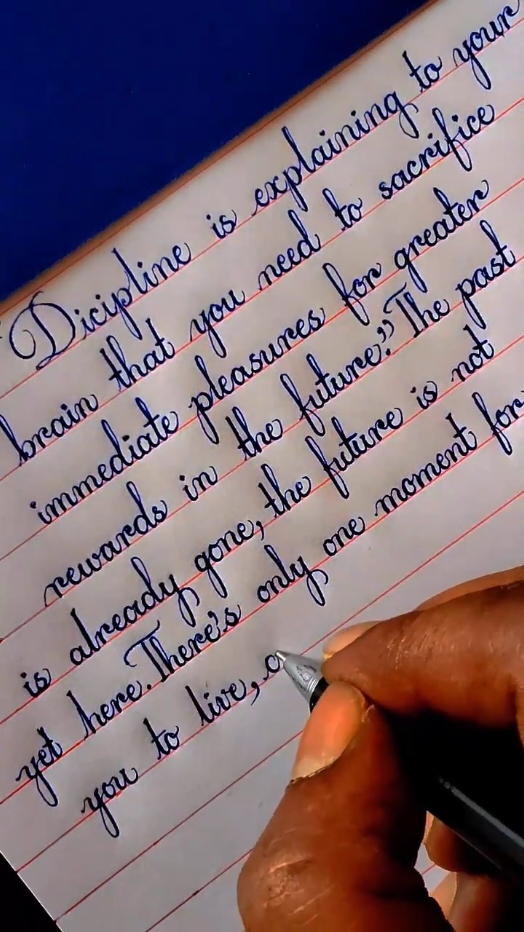 "Dicipline is explaining to your
brain that you need to sacrifice
immediate pleasures for greater
rewards in the future." The past
is already gone, the future is not
yet here. There's only one moment for
you to live, a